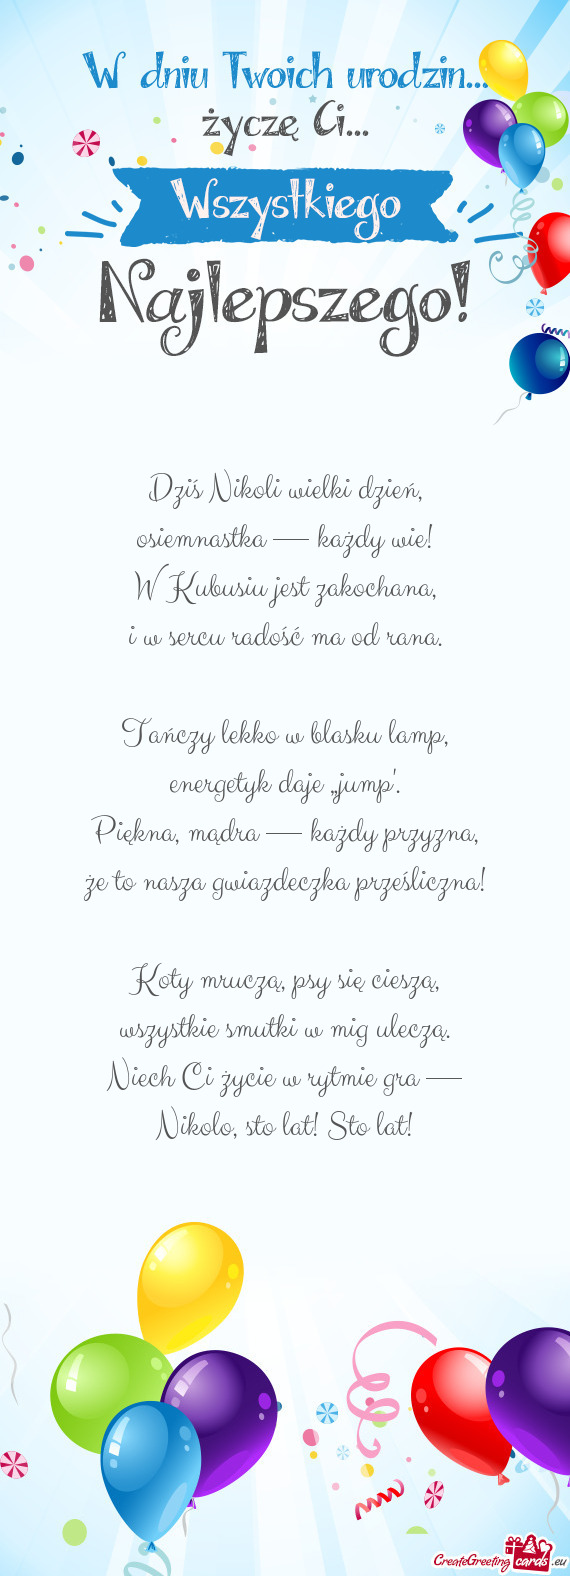 W dniu Twoich urodzin...
życzę Ci...
Wszystkiego
Najlepszego!
Dziś Nikoli wielki dzień,
osiemnastka — każdy wie!
W Kubusiu jest zakochana,
i w sercu radość ma od rana.
Tańczy lekko w blasku lamp,
energetyk daje „jump'.
Piękna, mądra — każdy przyzna,
że to nasza gwiazdeczka prześliczna!
Koty mruczą, psy się cieszą,
wszystkie smutki w mig uleczą.
Niech Ci życie w rytmie gra —
Nikolo, sto lat! Sto lat!
CreateGreeting cards .eu